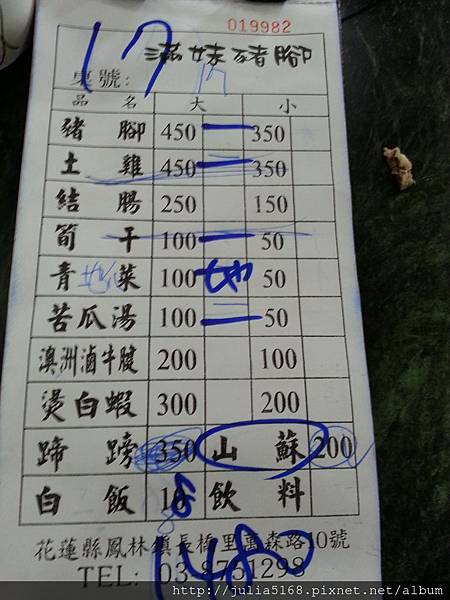 019982
17 滿妹豬腳
桌號:
品名 大 小
豬腳 450 一 350
土雞 450 一 350
結腸 250 150
筍干 100 一 50
青菜 100 50
苦瓜湯 100 一 50
澳洲滷牛腱 200 100
燙白蝦 300 200
蹄膀 350 山蘇 200
白飯 10 飲料
花蓮縣鳳林鎮長橋里萬森路10號
TEL: 03-8751298
1480
http://julia5168.pixnet.net/album